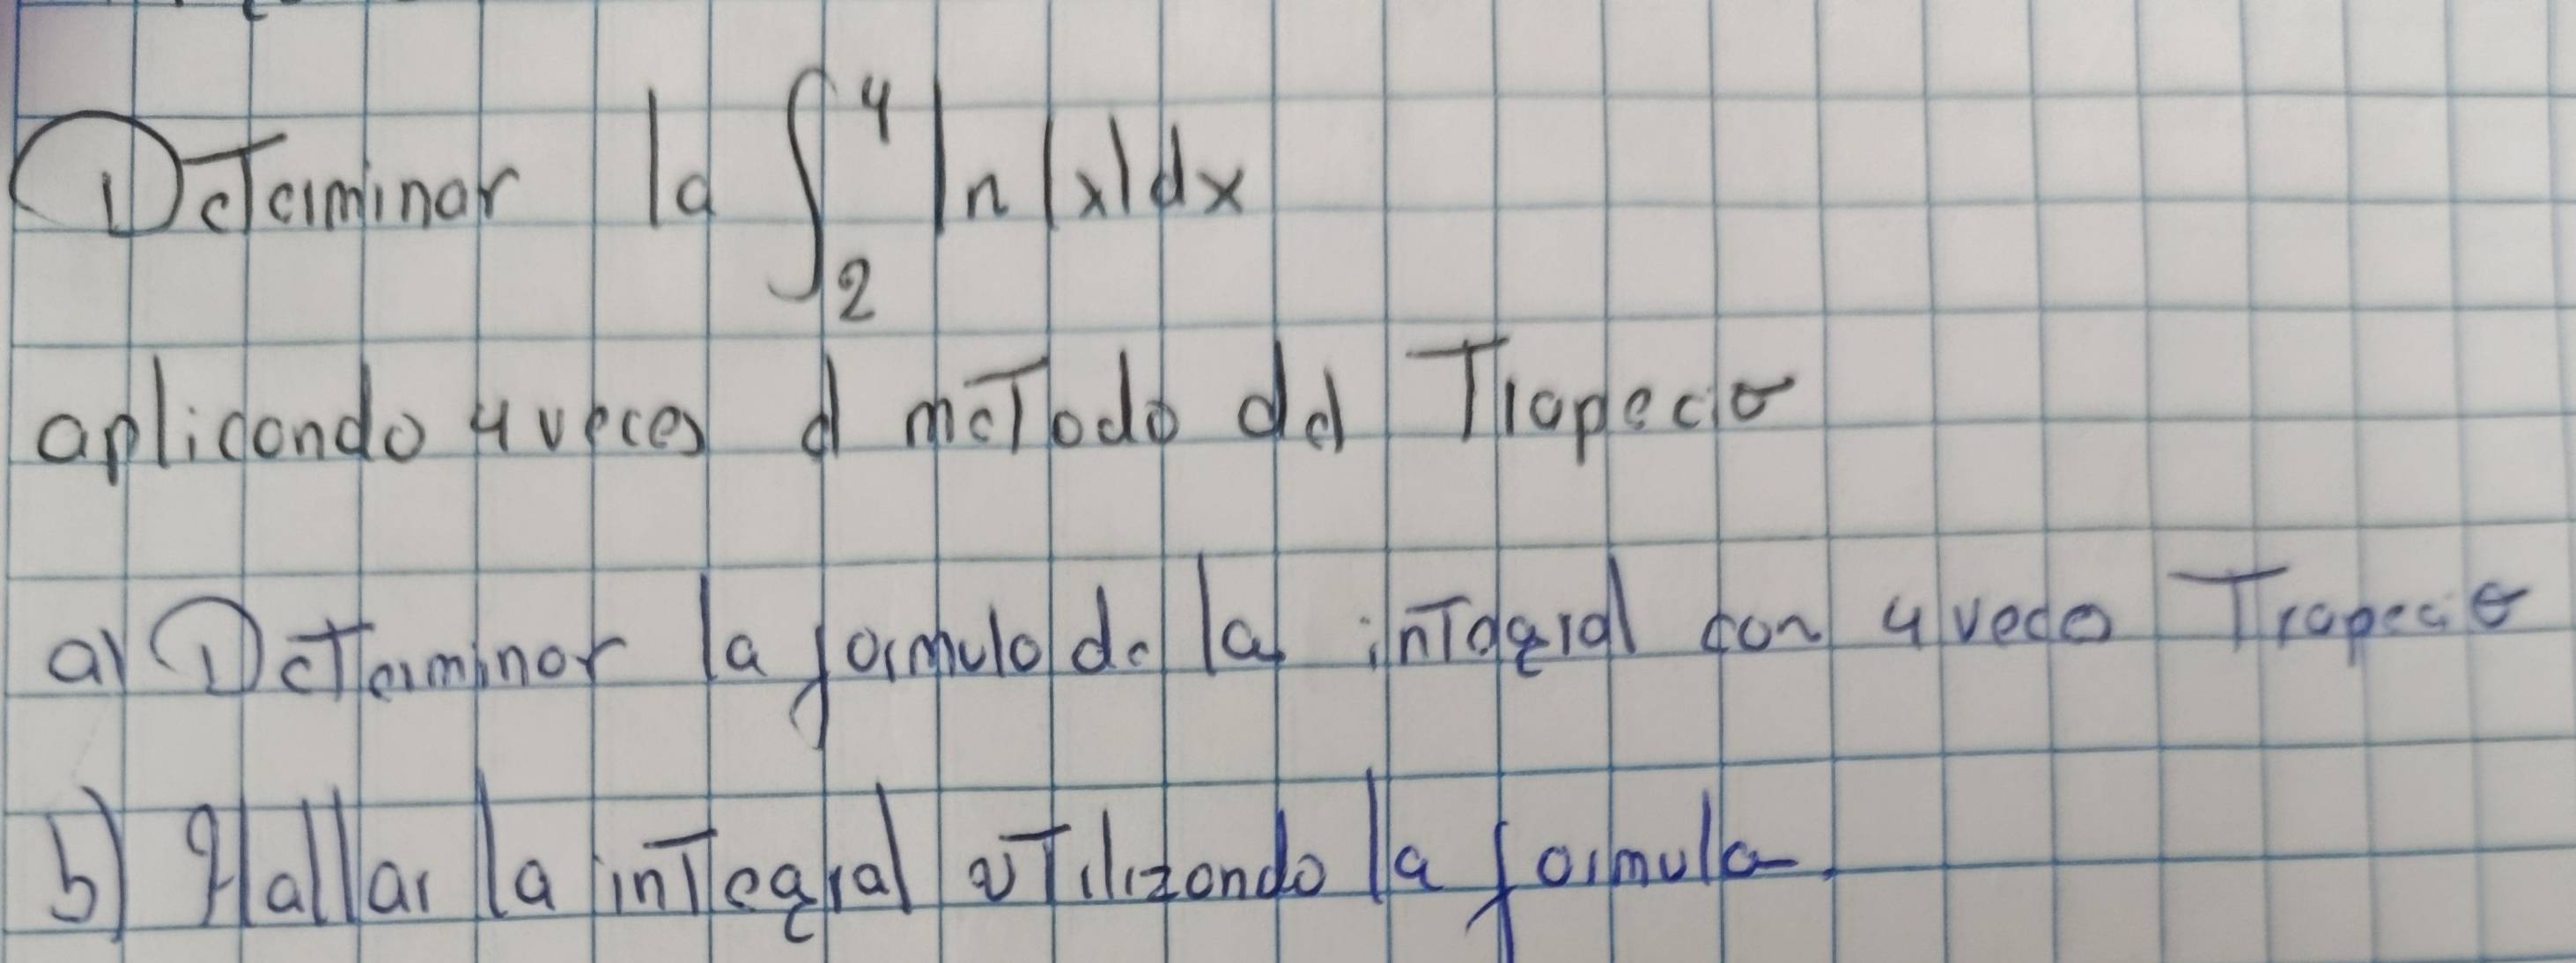 Determinar la ∫₂⁴ ln|x|dx
aplicando 4 veces el metodo del Trapecio
a) Determinar la formula de la integral con 4 veces Trapecio
b) Hallar la integral utilizando la formula.